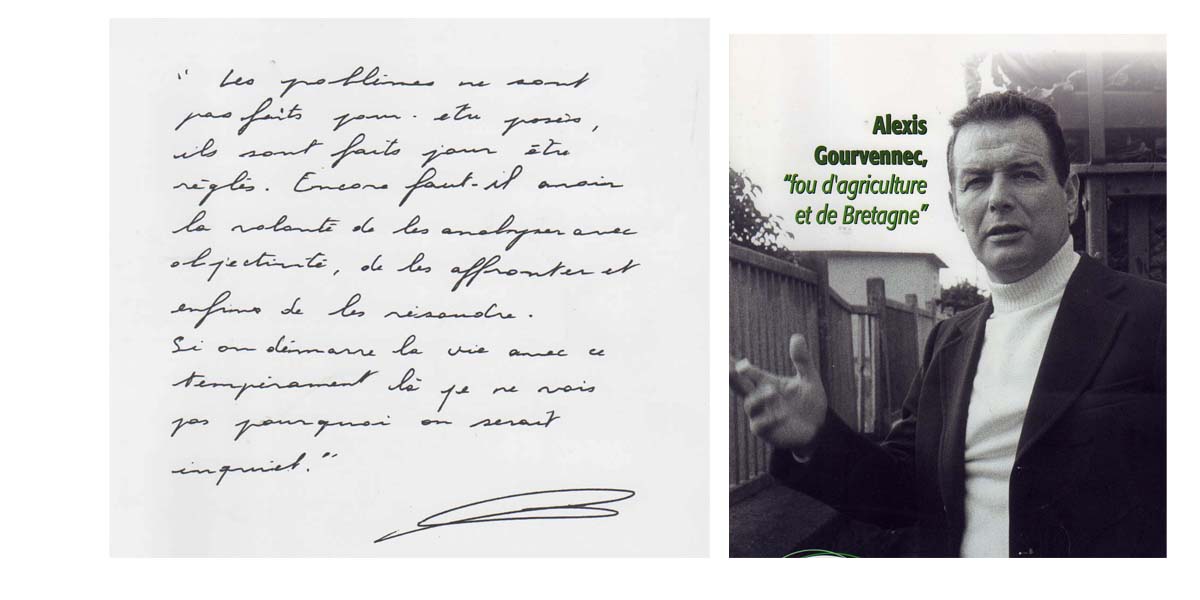 " Les problèmes ne sont
pas faits pour être posés,
ils sont faits pour être
réglés. Encore faut-il avoir
la volonté de les analyser avec
objectivité, de les affronter et
enfin de les résoudre.
Si on démarre la vie avec ce
tempérament là je ne vois
pas pourquoi on serait
inquiet."
Alexis
Gourvennec,
"fou d'agriculture
et de Bretagne"